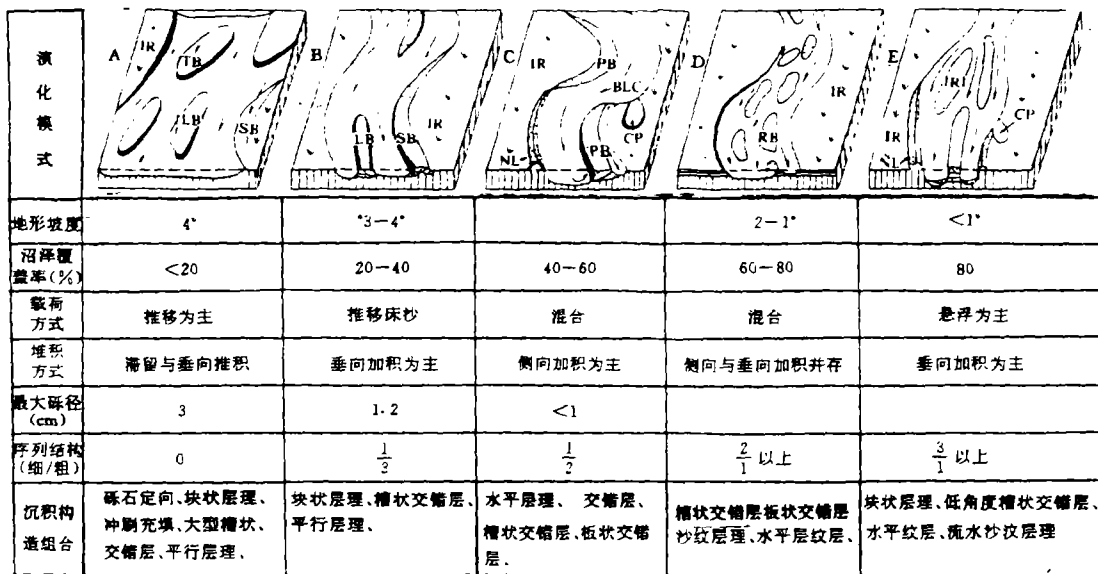 演化模式
A IR TB LB SB
B LB SB IR
C IR PB BLC CP NL PB
D IR RB
E IRI CP IR NL
地形坡度 4° °3—4° 2—1° <1°
沼泽覆盖率(%) <20 20—40 40—60 60—80 80
载荷方式 推移为主 推移床沙 混合 混合 悬浮为主
堆积方式 滞留与垂向推积 垂向加积为主 侧向加积为主 侧向与垂向加积并存 垂向加积为主
最大砾径(cm) 3 1.2 <1
序列结构(细/粗) 0 1/3 1/2 2/1 以上 3/1 以上
沉积构造组合
砾石定向、块状层理、
冲刷充填、大型槽状、
交错层、平行层理、
块状层理、槽状交错层、
平行层理、
水平层理、 交错层、
槽状交错层、板状交错
层、
槽状交错层板状交错层
沙纹层理、水平层纹层、
块状层理、低角度槽状交错层、
水平纹层、流水沙纹层理